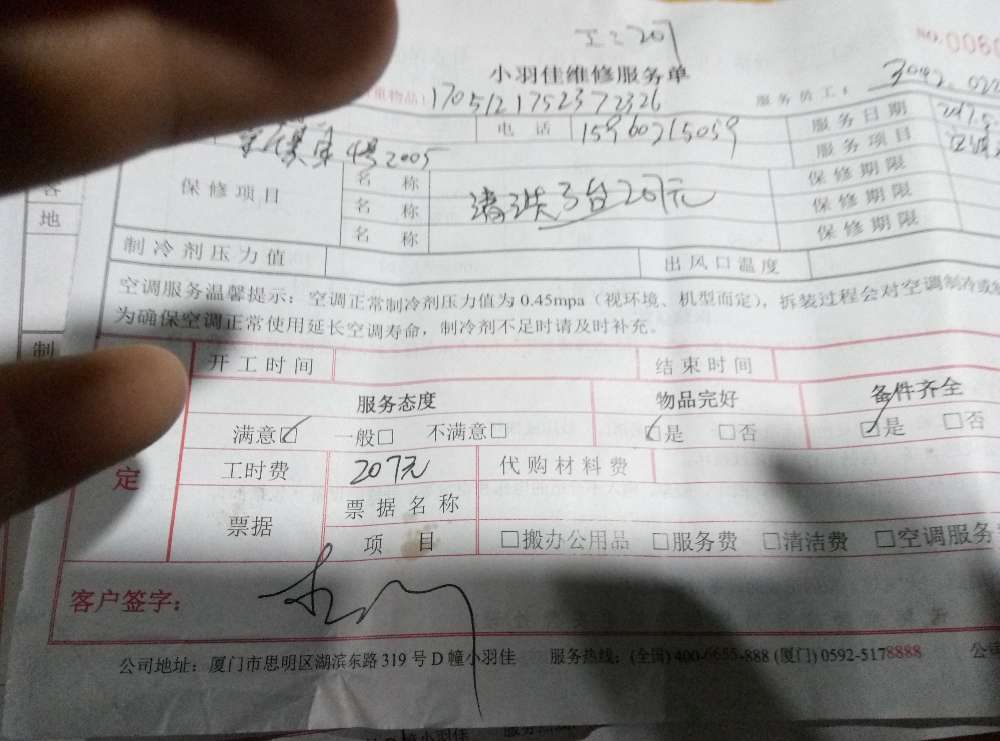 工:207
NO.0060
小羽佳维修服务单
重物品): 1705121752372326 服务员工:
电话 15960215059 服务日期
2005 服务项目
保修项目 名称 清洗3台207元 保修期限
名称 保修期限
名称 保修期限
制冷剂压力值 出风口温度
空调服务温馨提示:空调正常制冷剂压力值为0.45mpa(视环境、机型而定),拆装过程会对空调制冷或
为确保空调正常使用延长空调寿命,制冷剂不足时请及时补充。
开工时间 结束时间
服务态度 物品完好 备件齐全
满意☑ 一般□ 不满意□ ☑是 □否 ☑是 □否
定 工时费 207元 代购材料费
票据 票据名称
项目 □搬办公用品 □服务费 □清洁费 □空调服务
客户签字:
公司地址:厦门市思明区湖滨东路319号D幢小羽佳 服务热线:(全国)400-6655-888 (厦门)0592-5178888 公司
地
制